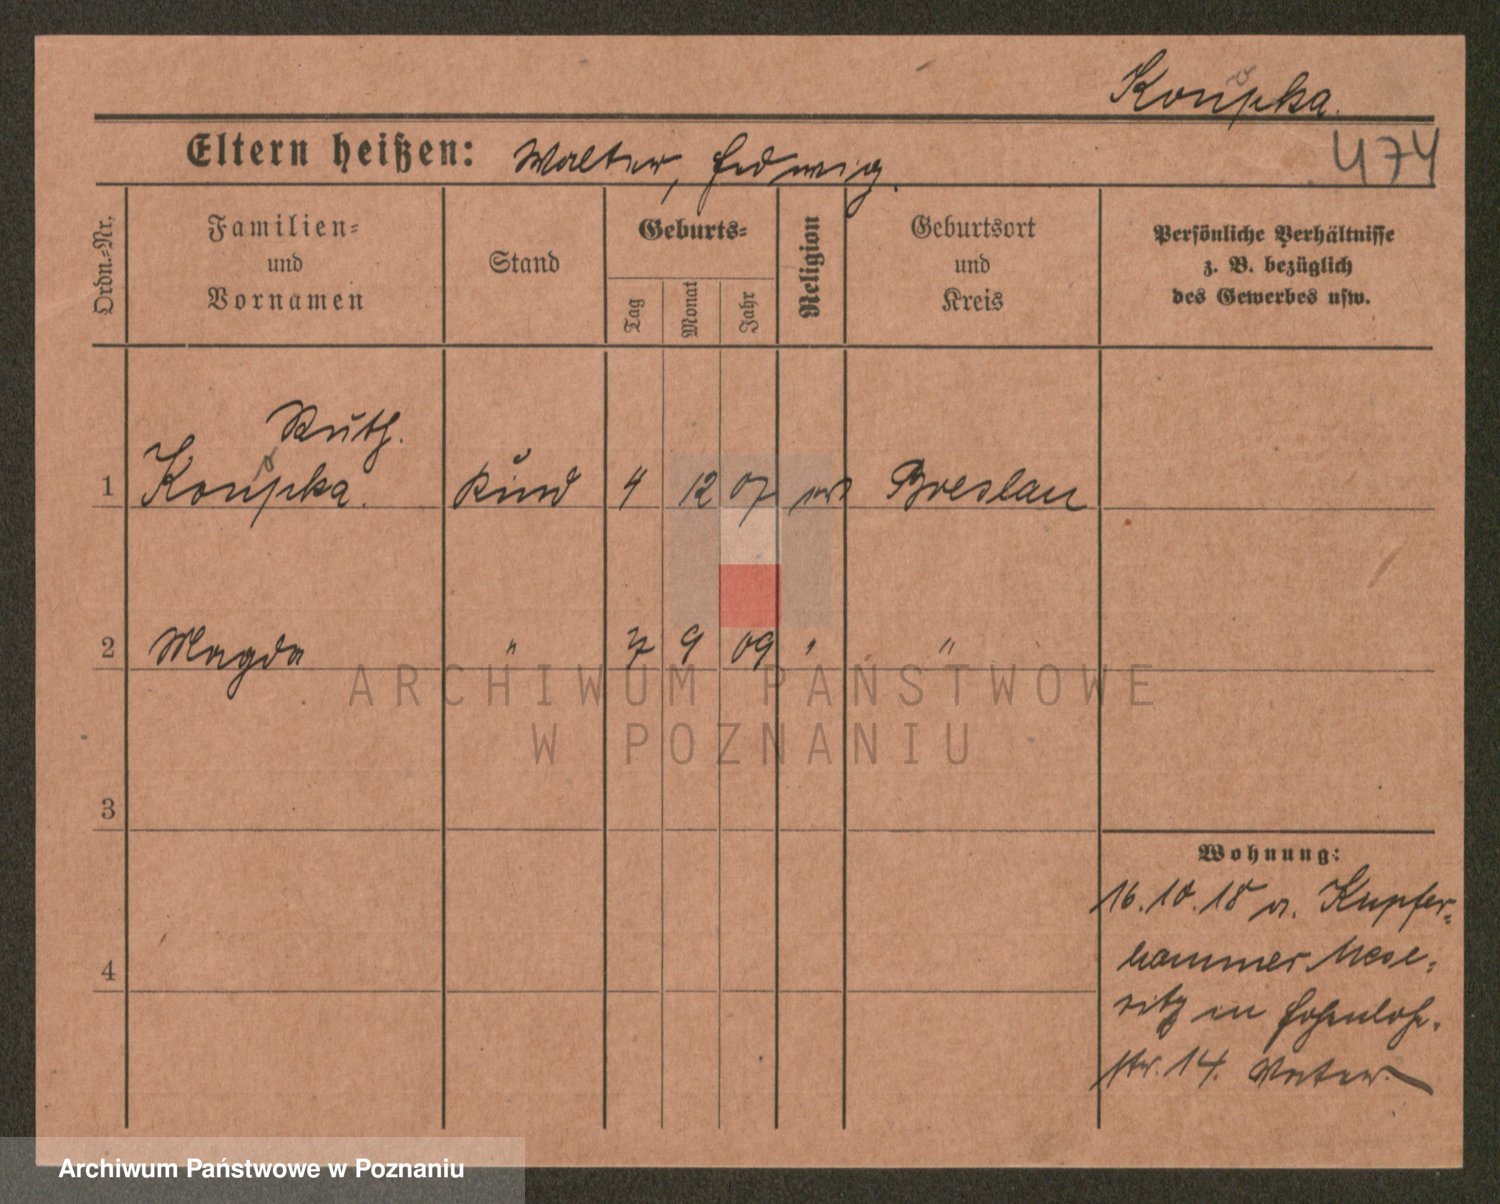 Koupka.
474
Eltern heißen: Walter, Hedwig.
Ordn.-Nr.
Familien-
und
Vornamen
Stand
Geburts-
Tag
Monat
Jahr
Religion
Geburtsort
und
Kreis
Persönliche Verhältnisse
z. B. bezüglich
des Gewerbes usw.
Ruth.
1 Koupka. Kind 4 12 07 Breslau
2 Magda " 7 9 09 " "
3
4
Wohnung:
16.10.18 v. Kupfer-
hammer Mese-
ritz in Hohenloh-
str. 14. Vater
ARCHIWUM PAŃSTWOWE
W POZNANIU
Archiwum Państwowe w Poznaniu